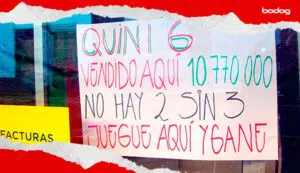 bodog
QUINI 6
VENDIDO AQUÍ 10.770.000
NO HAY 2 SIN 3
JUEGUE AQUÍ Y GANE
FACTURAS